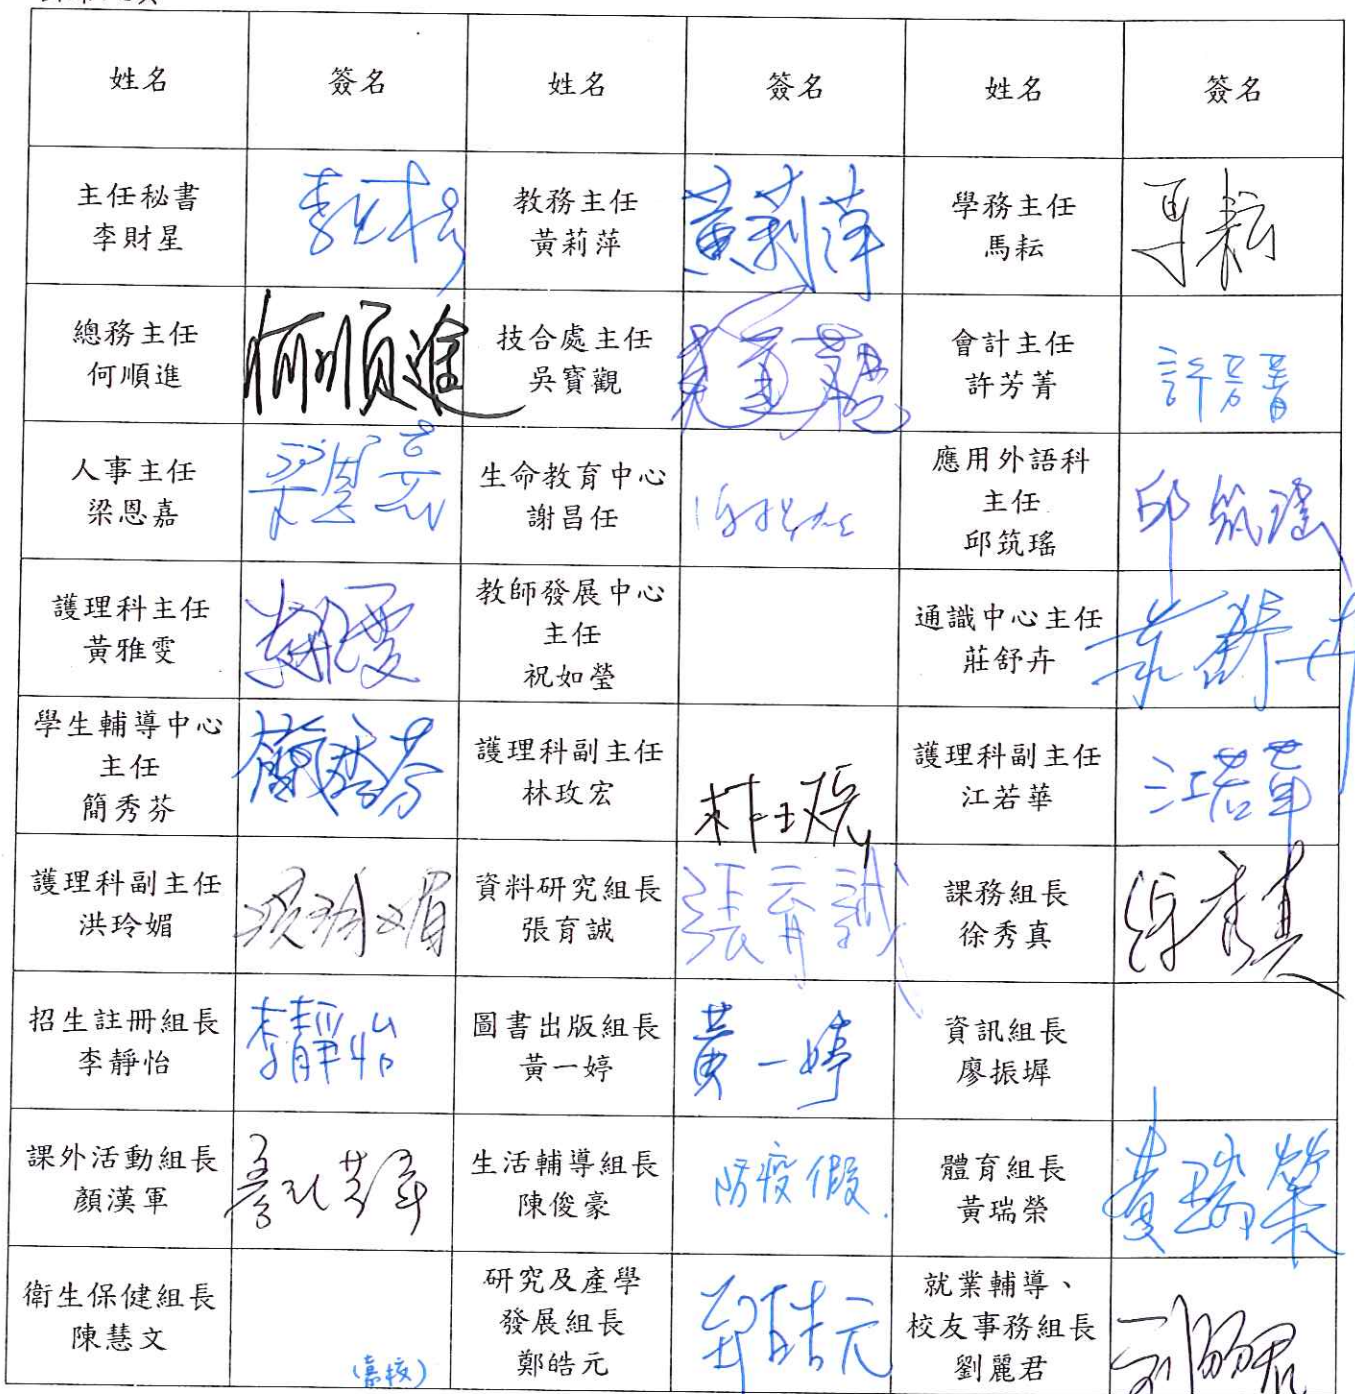 姓名 簽名 姓名 簽名 姓名 簽名
主任秘書
李財星
教務主任
黃莉萍
黃莉萍
學務主任
馬耘
馬耘
總務主任
何順進
何順進
技合處主任
吳寶觀
會計主任
許芳菁
許芳菁
人事主任
梁恩嘉
梁恩嘉
生命教育中心
謝昌任
應用外語科
主任
邱筑瑤
邱筑瑤
護理科主任
黃雅雯
教師發展中心
主任
祝如瑩
通識中心主任
莊舒卉
莊舒卉
學生輔導中心
主任
簡秀芬
簡秀芬
護理科副主任
林玫宏
護理科副主任
江若華
江若華
護理科副主任
洪玲媚
洪玲媚
資料研究組長
張育誠
張育誠
課務組長
徐秀真
徐秀真
招生註冊組長
李靜怡
李靜怡
圖書出版組長
黃一婷
黃一婷
資訊組長
廖振墀
課外活動組長
顏漢軍
生活輔導組長
陳俊豪
防疫假.
體育組長
黃瑞榮
黃瑞榮
衛生保健組長
陳慧文
(嘉校)
研究及產學
發展組長
鄭皓元
鄭皓元
就業輔導、
校友事務組長
劉麗君